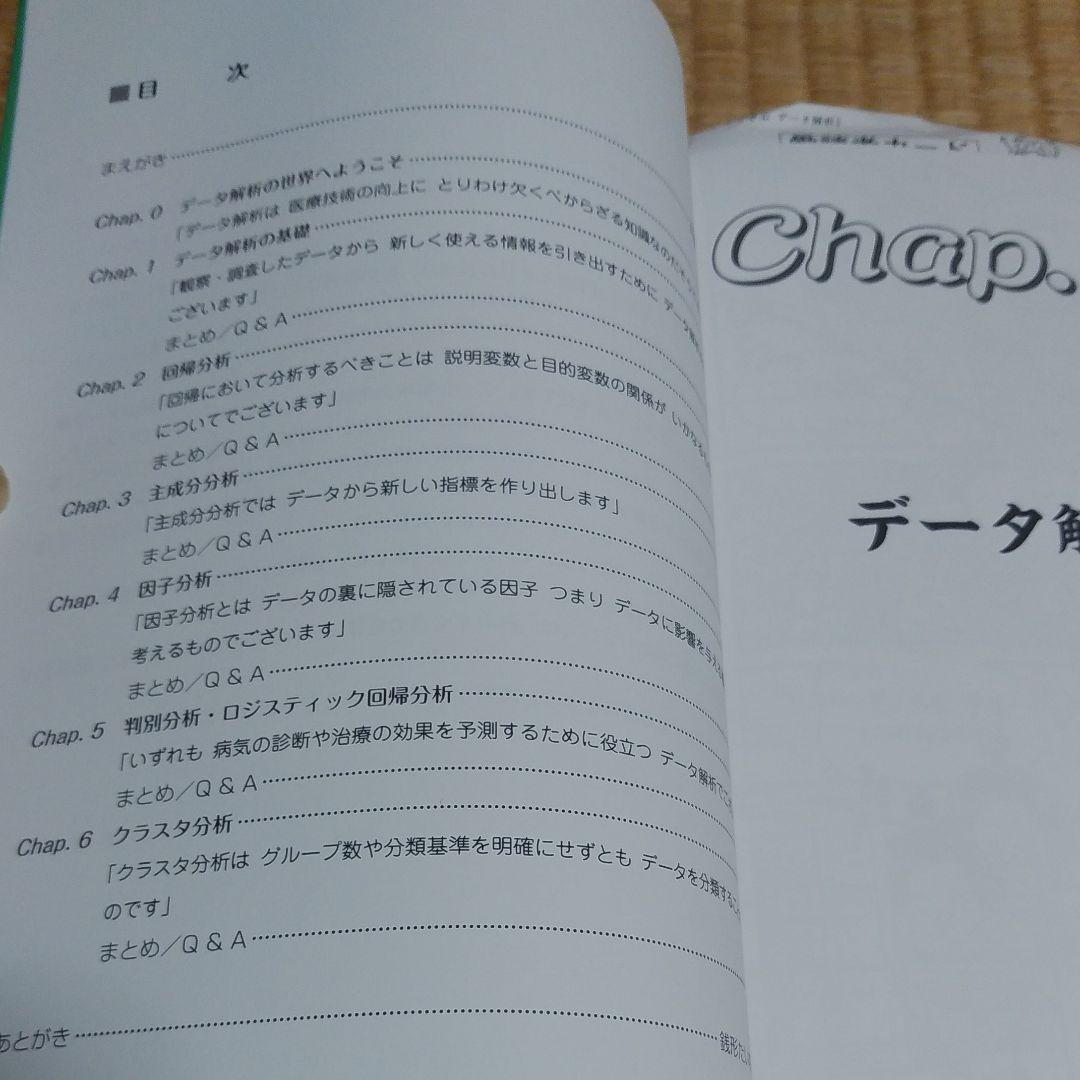 ■目 次
まえがき
Chap. 0 データ解析の世界へようこそ
「データ解析は 医療技術の向上に とりわけ欠くべからざる知識なの
Chap. 1 データ解析の基礎
「観察・調査したデータから 新しく使える情報を引き出すために データ
ございます」
まとめ／Q & A
Chap. 2 回帰分析
「回帰において分析するべきことは 説明変数と目的変数の関係が いかなる
についてでございます」
まとめ／Q & A
Chap. 3 主成分分析
「主成分分析では データから新しい指標を作り出します」
まとめ／Q & A
Chap. 4 因子分析
「因子分析とは データの裏に隠されている因子 つまり データに影響を与える
考えるものでございます」
まとめ／Q & A
Chap. 5 判別分析・ロジスティック回帰分析
「いずれも 病気の診断や治療の効果を予測するために役立つ データ解析でご
まとめ／Q & A
Chap. 6 クラスタ分析
「クラスタ分析は グループ数や分類基準を明確にせずとも データを分類すること
のです」
まとめ／Q & A
あとがき
銭形
Chap.
データ解